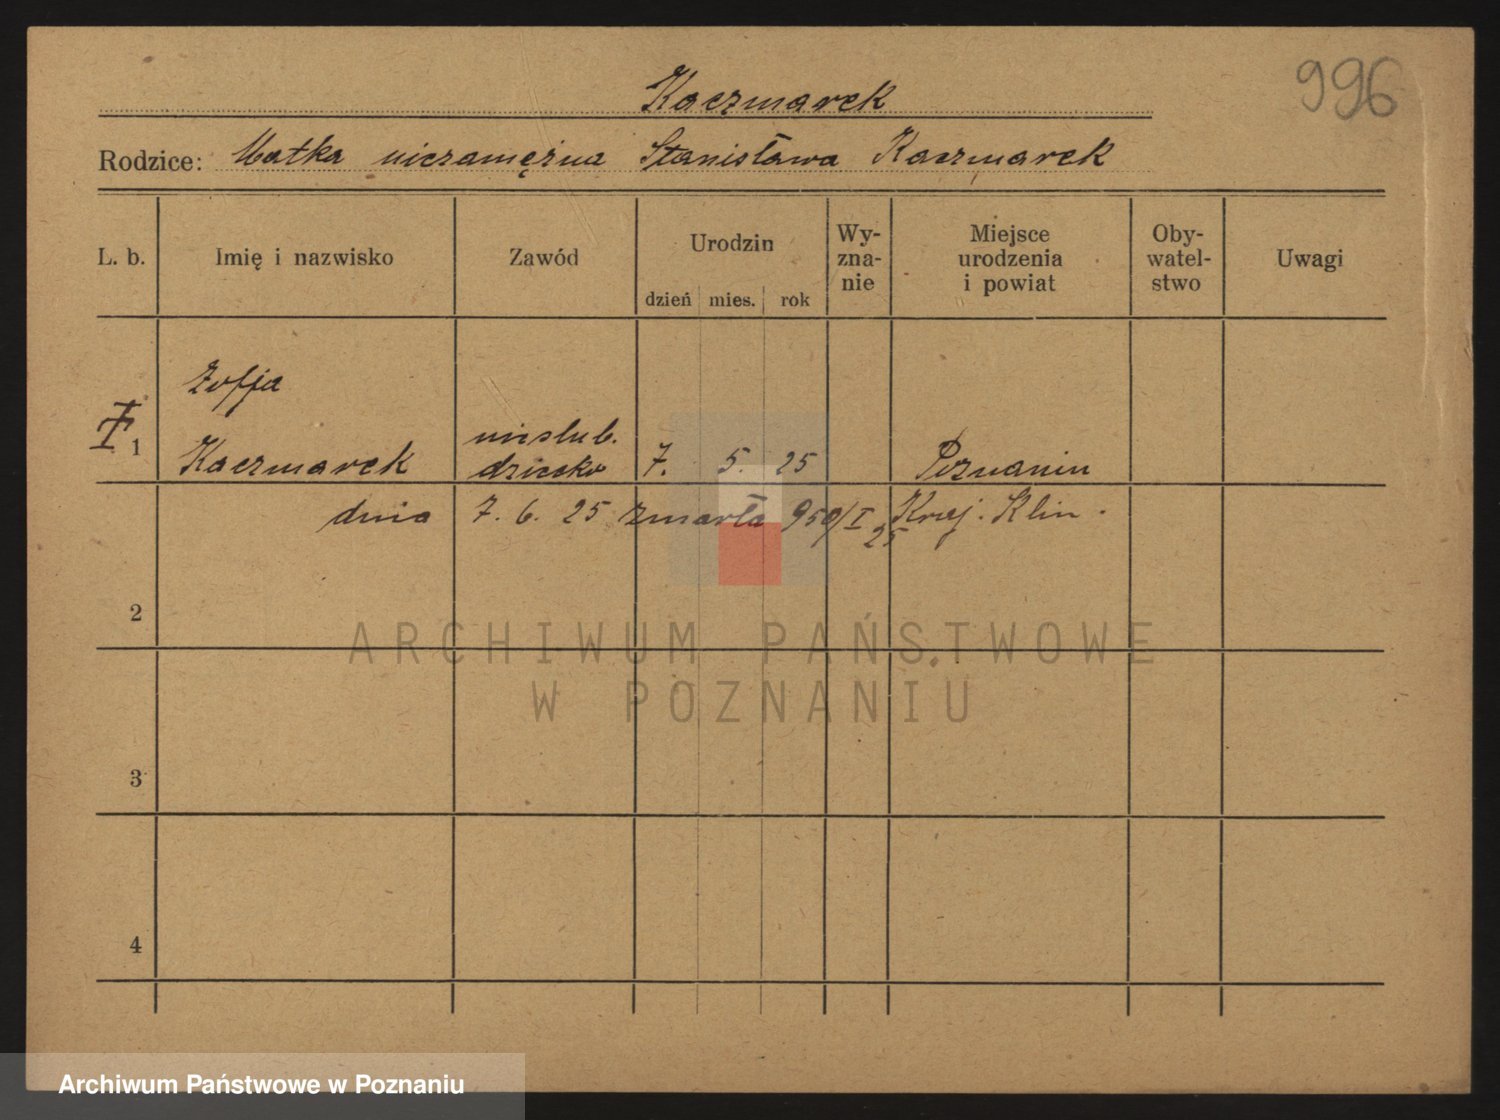 996
Kaczmarek
Rodzice: Matka niezamężna Stanisława Kaczmarek
L. b. Imię i nazwisko Zawód Urodzin dzień mies. rok Wy-zna-nie Miejsce urodzenia i powiat Oby-watel-stwo Uwagi
Zofja
1 Kaczmarek nieslub. dziecko 7. 5. 25 Poznaniu
dnia 7. 6. 25 zmarła 950/I 25 Kraj. Klin.
2
ARCHIWUM PAŃSTWOWE
W POZNANIU
3
4
Archiwum Państwowe w Poznaniu